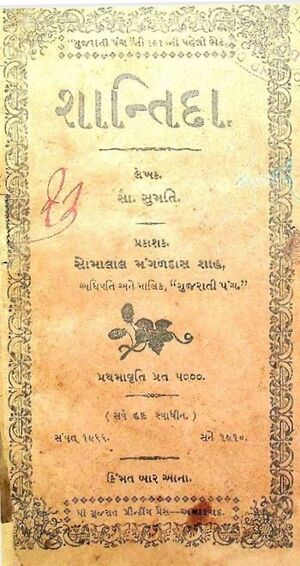 “ગુજરાતી પંચ”ની ૧૯૧૦ની પહેલી ભેટ.
શાન્તિદા.
લેખક.
સૌ. સુમતિ.
પ્રકાશક.
સોમાલાલ મંગળદાસ શાહ,
અધિપતિ અને માલિક, “ગુજરાતી પંચ.”
પ્રથમાવૃતિ પ્રત ૫૦૦૦.
( સર્વ હક સ્વાધીન. )
સંવત ૧૯૬૬. સને ૧૯૧૦.
કિંમત બાર આના.
ધી ગુજરાત પ્રીન્ટીંગ પ્રેસ—અમદાવાદ.